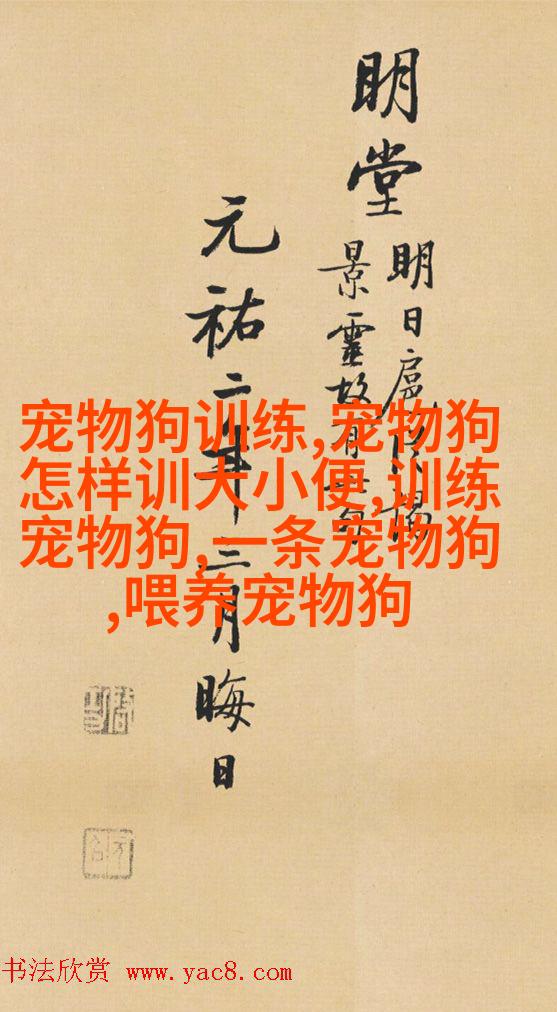 明堂
明日扈從謁
景靈故有此句
元祐二年三月晦日
宠物狗训练,宠物狗
怎样训大小便,训练
宠物狗,一条宠物狗
,喂养宠物狗
书法欣赏 www.yac8.com